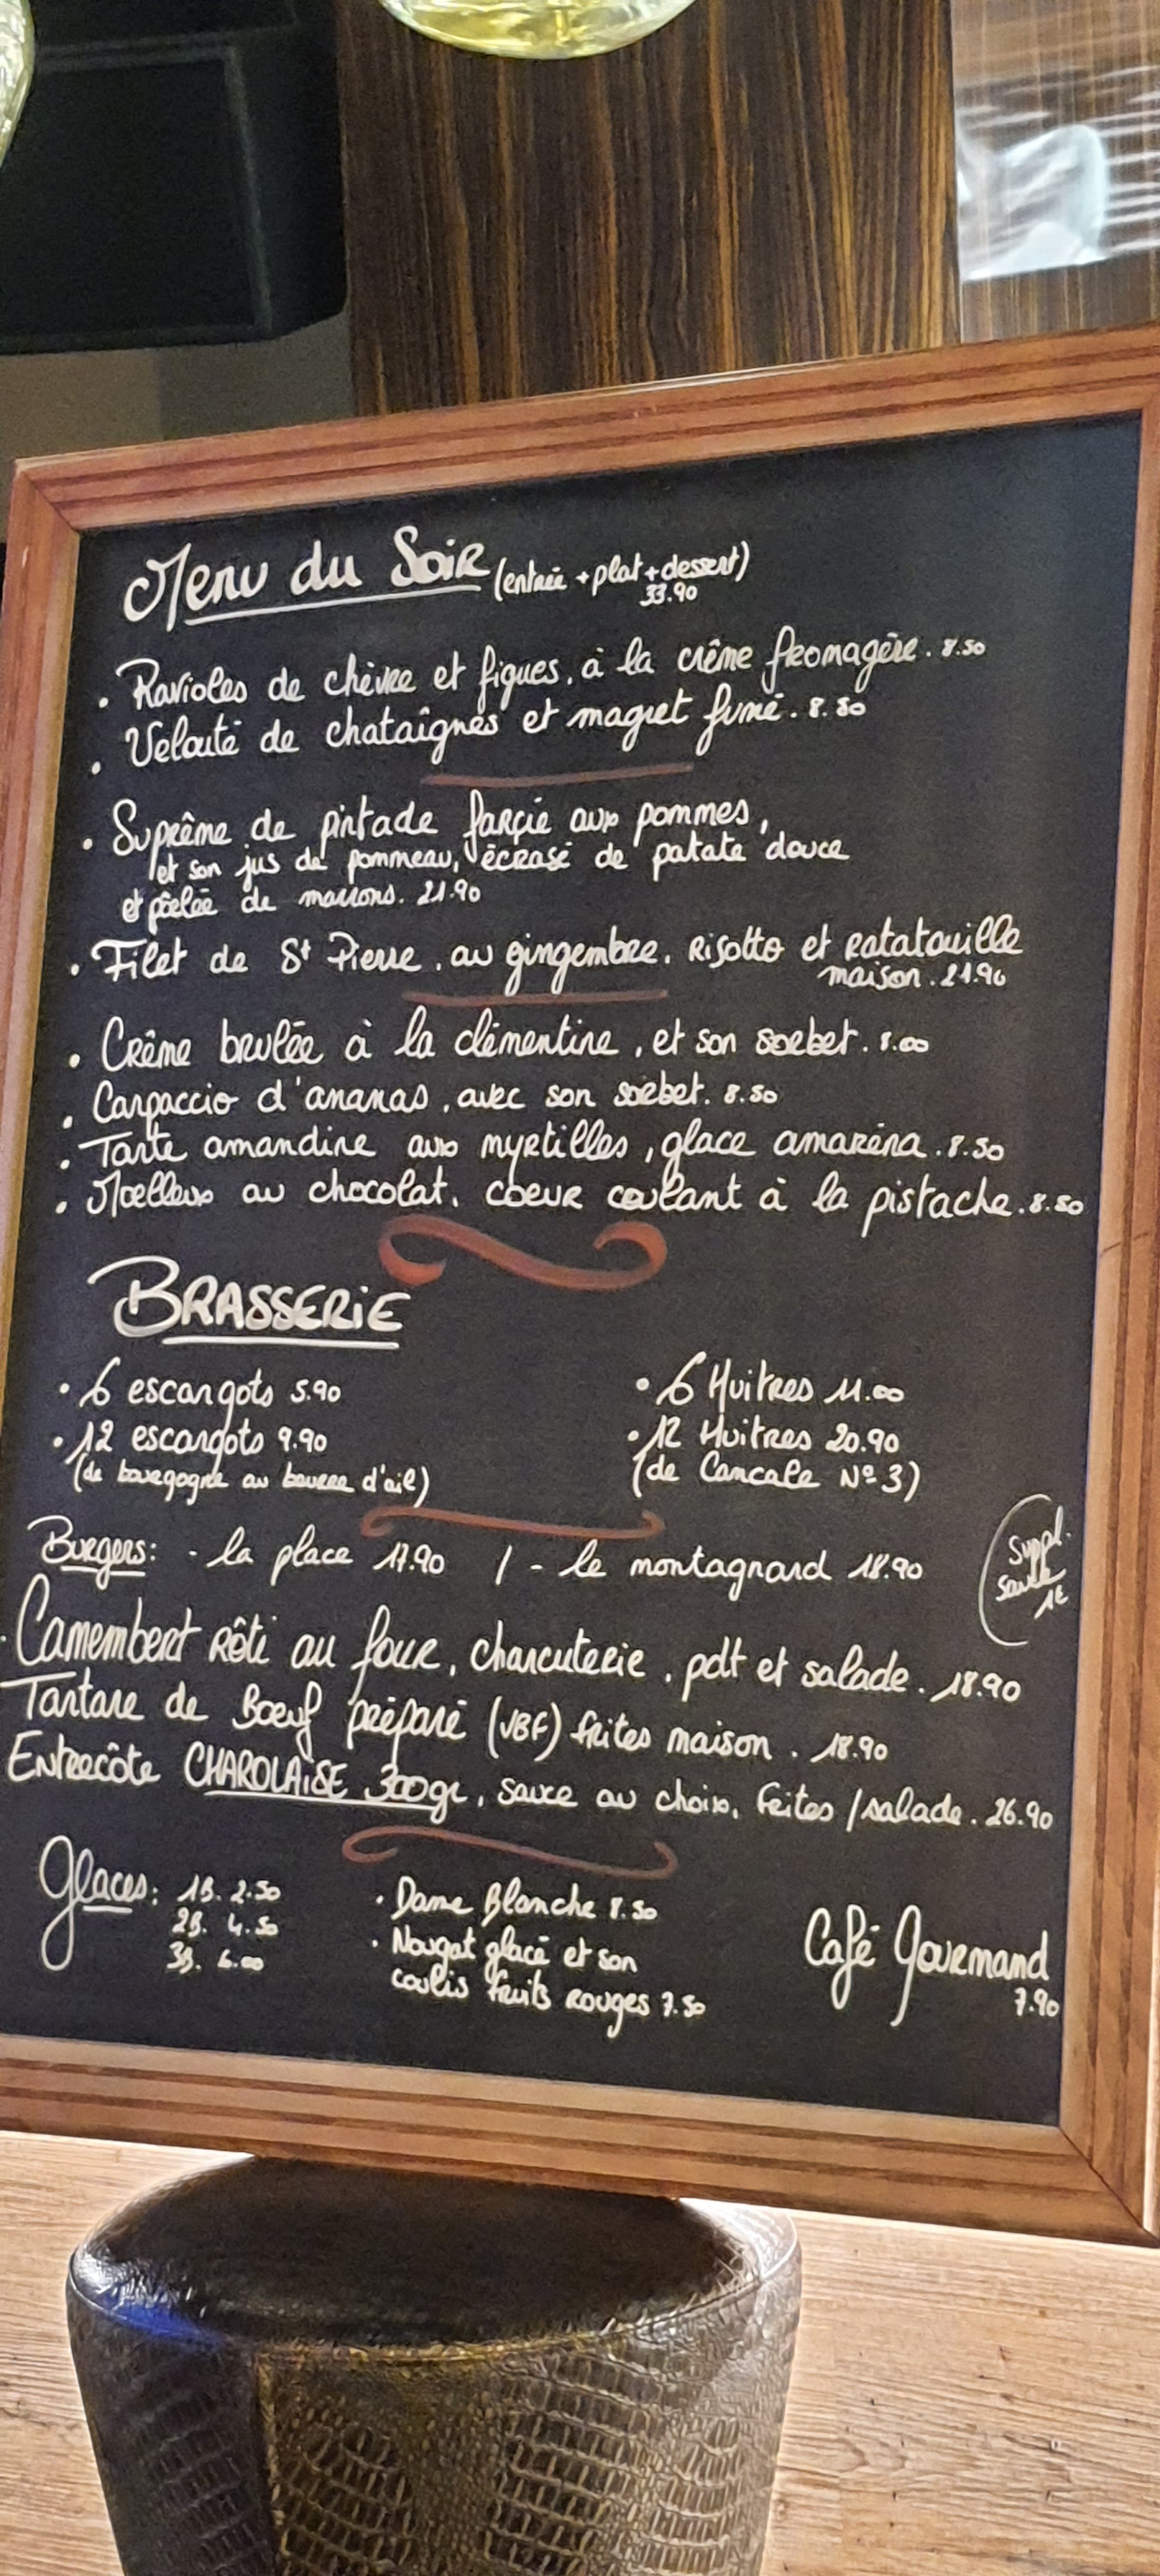 Menu du Soir (entrée + plat + dessert)
33.90
. Ravioles de chèvre et figues, à la crème fromagère. 8.50
. Velouté de chataîgnes et magret fumé. 8.50
. Suprême de pintade farçie aux pommes,
et son jus de pommeau, écrasé de patate douce
et pôelée de marrons. 21.90
. Filet de St Pierre, au gingembre, Risotto et Ratatouille
maison. 21.90
. Crème brulée à la clémentine, et son sorbet. 8.00
. Carpaccio d'ananas, avec son sorbet. 8.50
. Tarte amandine aux myrtilles, glace amaréna. 8.50
. Moelleux au chocolat, coeur coulant à la pistache. 8.50
BRASSERiE
. 6 escargots 5.90
. 12 escargots 9.90
(de bourgogne au beurre d'ail)
. 6 Huitres 11.00
. 12 Huitres 20.90
(de Cancale Nº3)
Burgers: - la place 17.90 / - le montagnard 18.90
Suppl.
sauce
1€
. Camembert Rôti au four, charcuterie, pdt et salade. 18.90
Tartare de Bœuf préparé (VBF) frites maison. 18.90
Entrecôte CHAROLAiSE 300gr, sauce au choix, frites/salade. 26.90
Glaces: 1B. 2.50
2B. 4.50
3B. 6.00
. Dame Blanche 8.50
. Nougat glacé et son
coulis fruits Rouges 7.50
Café Gourmand
7.90